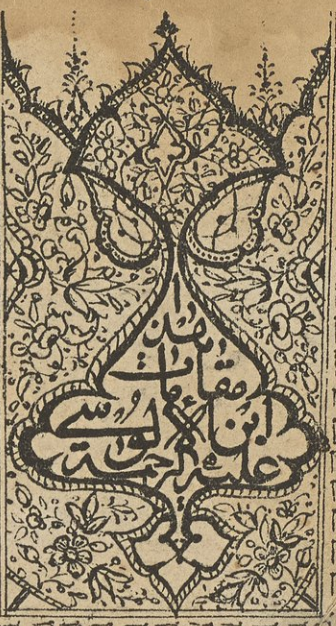 هذه
مقامات
ابن الالوسي
عليه الرحمة